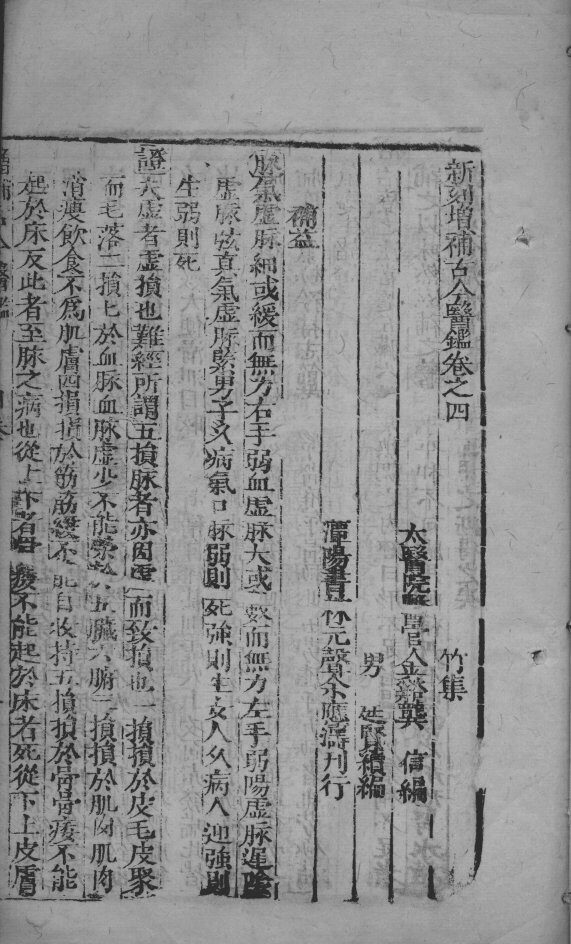 新刻增補古今醫鑑卷之四
竹集
太醫院 醫官金谿龔 信編
男 廷賢續編
潭陽書林元聲余應濤刊行
補益
脉氣虛脉細或緩而無力右手弱血虛脉大或數而無力左手弱陽虛脉遲陰
虛脉弦真氣虛脉緊男子久病氣口脉弱則死強則生女人久病人迎強則
生弱則死
證夫虛者虛損也難經所謂五損脉者亦因虛而致損也一損損於皮毛皮聚
而毛落二損損於血脉血脉虛少不能榮於五臟六腑三損損於肌肉肌肉
消瘦飲食不為肌膚四損損於筋筋緩不能自收持五損損於骨骨痿不能
起於床反此者至脉之病也從上下者骨痿不能起於床者死從下上皮膚